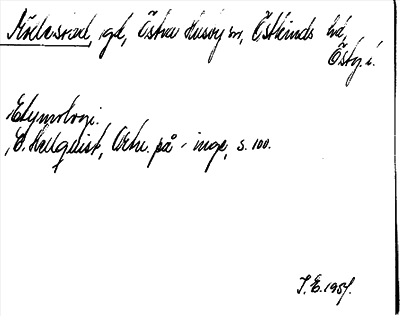 gd, Östra Husby sn, Östkinds hd,
Östg. l.
Etymologi.
E. Hellquist, Ortn. på -inge, s. 100.
J. E. 1957.